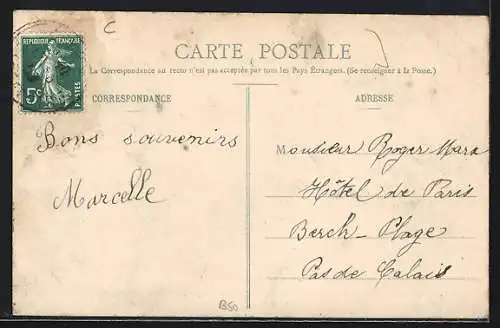 C
RÉPUBLIQUE FRANÇAISE
5c
POSTES
CARTE POSTALE
La Correspondance au recto n'est pas acceptée par tous les Pays Étrangers. (Se renseigner à la Poste.)
CORRESPONDANCE
ADRESSE
Bons souvenirs
Marcelle
Monsieur Roger Mara
Hôtel de Paris
Berch-Plage
Pas de Calais
B50